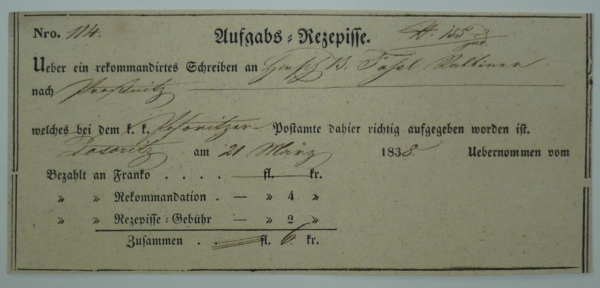 Nro. 114. Aufgabs-Rezepisse. 155
Ueber ein rekommandirtes Schreiben an Hirsch B. Fassel Rabbiner
nach Proßnitz
welches bei dem k. k. Posoritzer Postamte dahier richtig aufgegeben worden ist.
Posoritz am 21 März 1838. Uebernommen vom
Bezahlt an Franko . . . . — fl. — kr.
» » Rekommandation . — » 4 »
» » Rezepisse-Gebühr — » 2 »
Zusammen . . — fl. 6 kr.